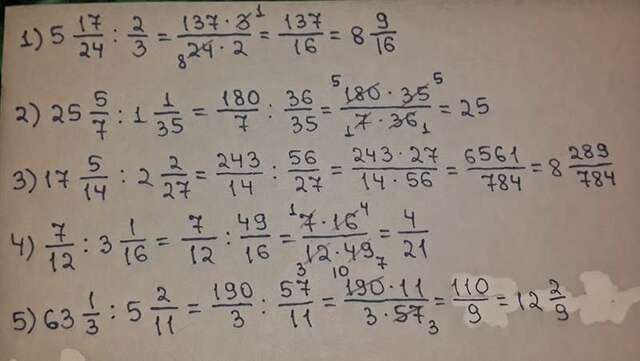 1) 5 17/24 : 2/3 = 137 · 3 1 / 8 24 · 2 = 137/16 = 8 9/16
2) 25 5/7 : 1 1/35 = 180/7 : 36/35 = 5 180 · 35 5 / 1 7 · 36 1 = 25
3) 17 5/14 : 2 2/27 = 243/14 : 56/27 = 243 · 27 / 14 · 56 = 6561/784 = 8 289/784
4) 7/12 : 3 1/16 = 7/12 : 49/16 = 1 7 · 16 4 / 3 12 · 49 7 = 4/21
5) 63 1/3 : 5 2/11 = 190/3 : 57/11 = 10 190 · 11 / 3 · 57 3 = 110/9 = 12 2/9